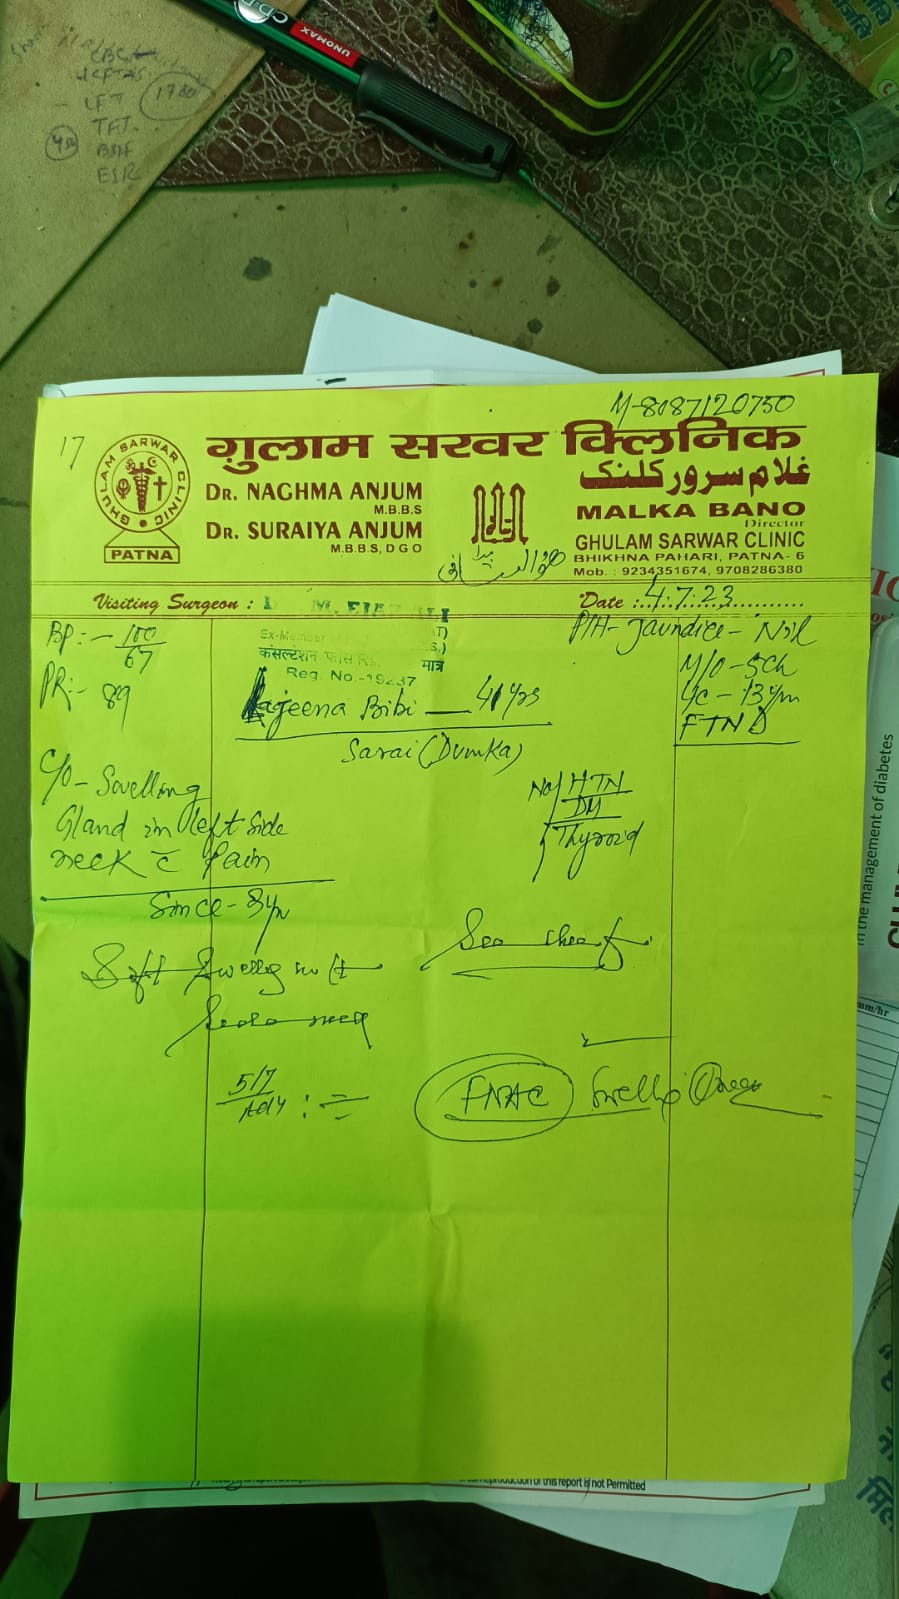 UNOMAX
CBC
LFT
1700
TFT
BSF
ESR
M-8087120750
17
गुलाम सरवर क्लिनिक
غلام سرور کلنک
GHULAM SARWAR CLINIC
PATNA
DR. NAGHMA ANJUM
M.B.B.S
DR. SURAIYA ANJUM
M.B.B.S, D G O
MALKA BANO
Director
GHULAM SARWAR CLINIC
BHIKHNA PAHARI, PATNA- 6
Mob. : 9234351674, 9708286380
هوالشافی
Visiting Surgeon :
Date :. 4.7.23
Ex-Member
कंसल्टेशन फीस Rs. मात्र
Reg. No.-19237
BP:- 100/67
PR:- 89
P/H- Jaundice - Nil
M/O-5ch
L/C - 13yrs
FTND
Bibi — 41yrs
Sarai (Dumka)
C/O- Swelling
Gland in left side
neck c̄ Pain
Since - 3yr
No HTN
DM
Thyroid
Soft Swelling
5/7
Adv :-
FNAC Swelling
in the management of diabetes
mm/hr
Reproduction of this report is not Permitted